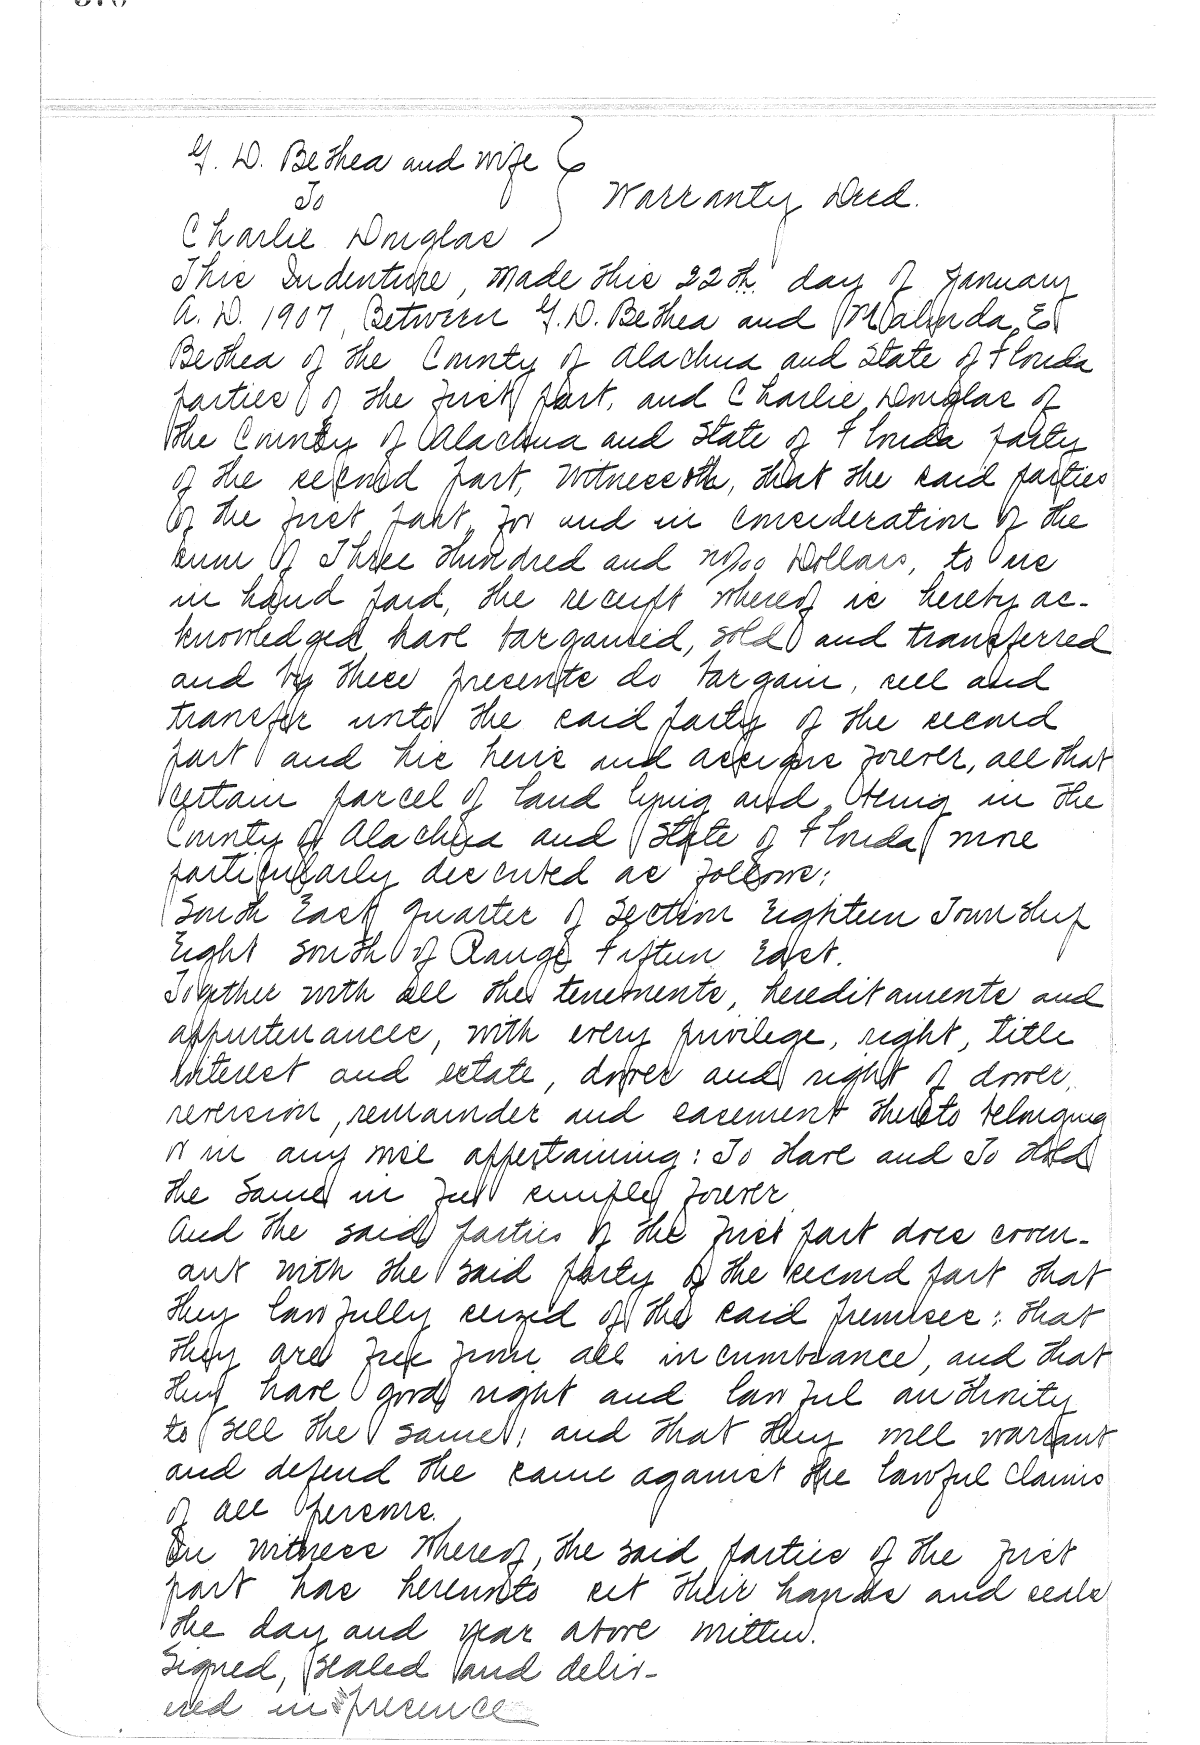 G. D. Bethea and wife
To
Warranty Deed.
Charlie Douglas
This Indenture, Made this 22th day of January
A. D. 1907, Between G. D. Bethea and Malinda E
Bethea of the County of Alachua and State of Florida
parties of the first part, and Charlie Douglas of
the County of Alachua and State of Florida party
of the second part, Witnesseth, that the said parties
of the first part, for and in consideration of the
sum of Three Hundred and no/oo Dollars, to us
in hand paid, the receipt whereof is hereby ac-
knowledged, have bargained, sold and transferred
and by these presents do bargain, sell and
transfer unto the said party of the second
part and his heirs and assigns forever, all that
certain parcel of land lying and being in the
County of Alachua and State of Florida, more
particularly described as follows:
South East quarter of Section Eighteen Township
Eight South of Range Fifteen East.
Together with all the tenements, hereditaments and
appurtenances, with every privilege, right, title
interest and estate, dower and right of dower,
reversion, remainder and easement thereto belonging
or in any wise appertaining: To Have and To Hold
the same in fee simple forever.
And the said parties of the first part does coven-
ant with the said party of the second part that
they lawfully seized of the said premises; that
they are free from all incumbrance, and that
they have good right and lawful authority
to sell the same; and that they will warrant
and defend the same against the lawful claims
of all persons.
In witness whereof, the said parties of the first
part has hereunto set their hands and seals
the day and year above written.
Signed, sealed and deliv-
ered in presence